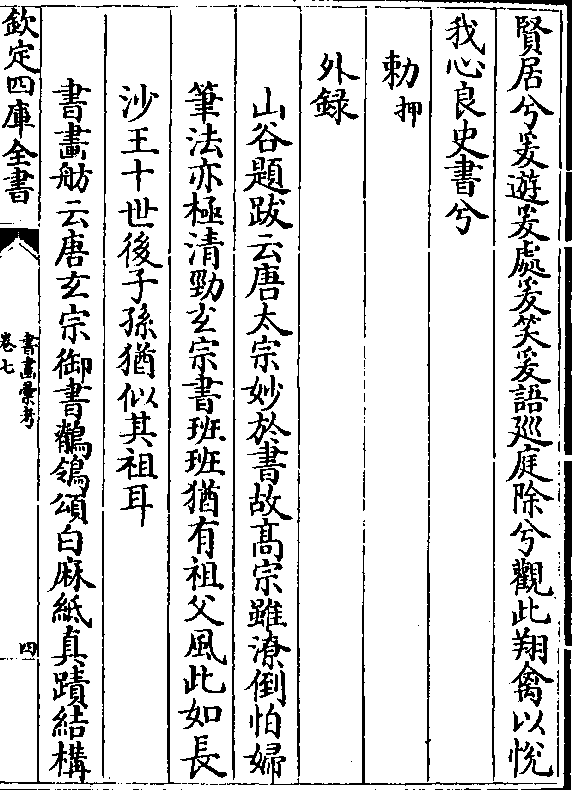 賢居兮爰遊爰處爰笑爰語巡庭除兮觀此翔禽以悅
我心良史書兮
勑押
外録
山谷題跋云唐太宗妙於書故髙宗雖潦倒怕婦
筆法亦極清勁玄宗書班班猶有祖父風此如長
沙王十世後子孫猶似其祖耳
書畫舫云唐玄宗御書鶺鴒頌白麻紙真蹟結構
欽定四庫全書
書畫彚考
卷七
四